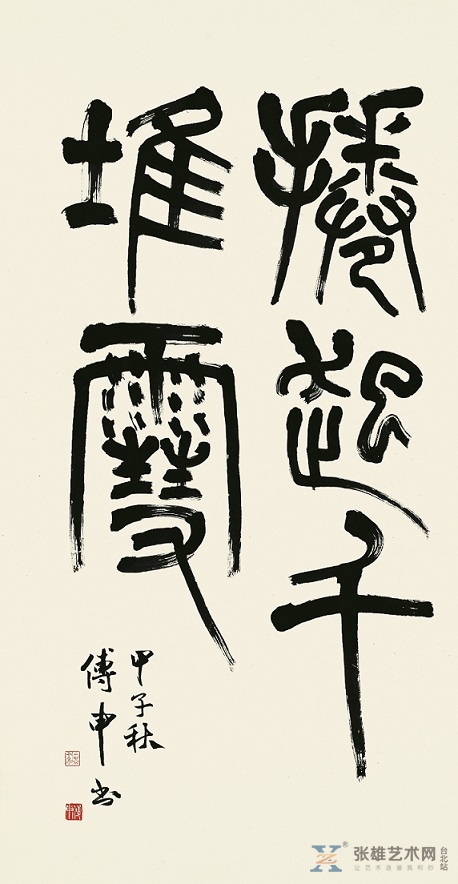 捲起千
堆雪
甲子秋
傅申書
张雄艺术网
台北站